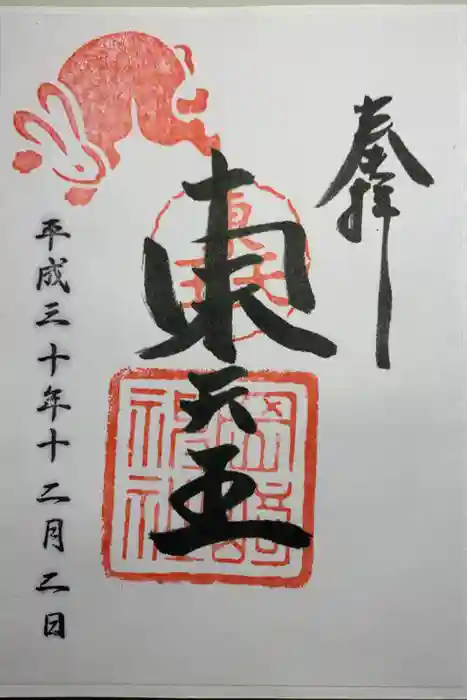 奉拝
東天王
平成三十年十二月二日